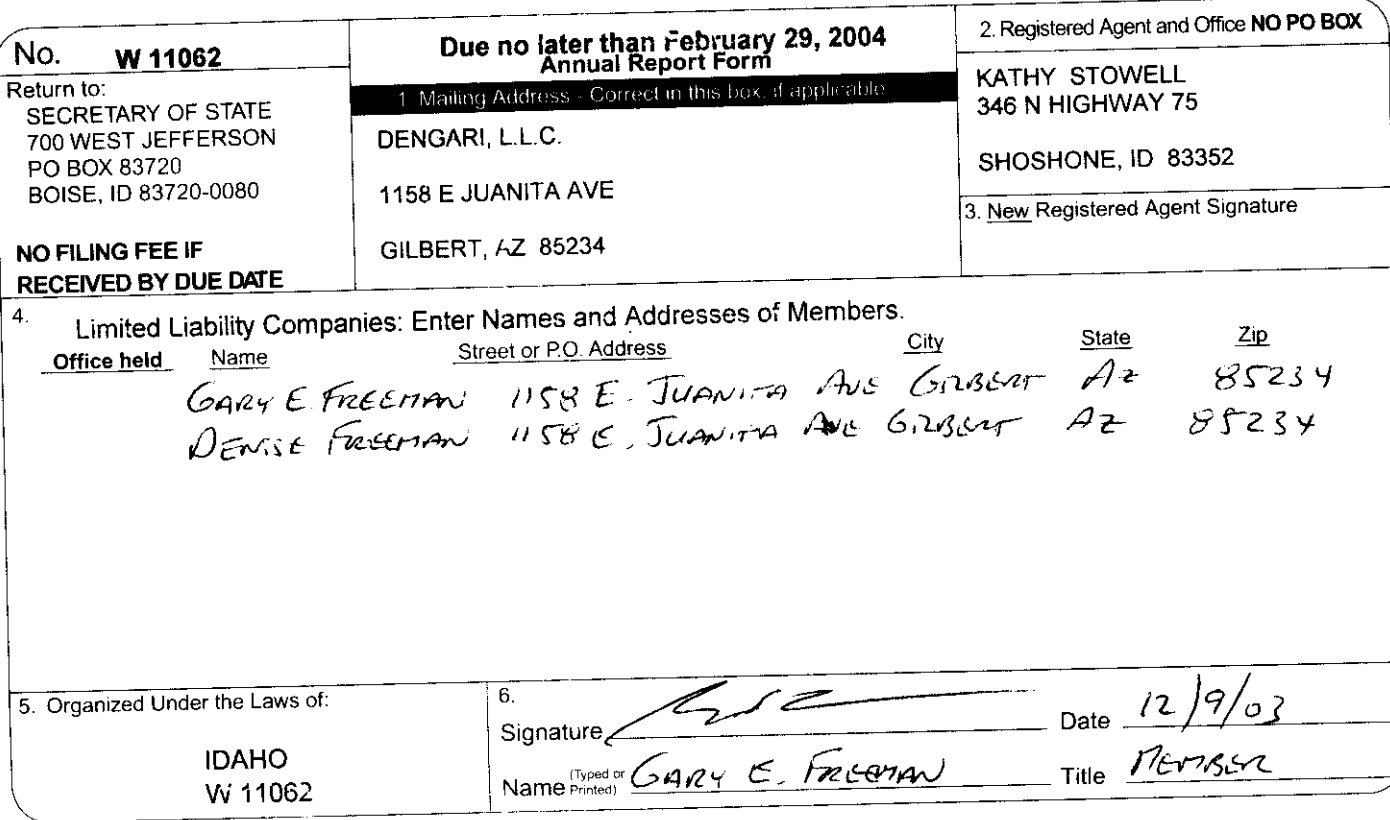 No. W 11062
Return to:
SECRETARY OF STATE
700 WEST JEFFERSON
PO BOX 83720
BOISE, ID 83720-0080
NO FILING FEE IF
RECEIVED BY DUE DATE
Due no later than February 29, 2004
Annual Report Form
1. Mailing Address - Correct in this box, if applicable
DENGARI, L.L.C.
1158 E JUANITA AVE
GILBERT, AZ 85234
2. Registered Agent and Office NO PO BOX
KATHY STOWELL
346 N HIGHWAY 75
SHOSHONE, ID 83352
3. New Registered Agent Signature
4. Limited Liability Companies: Enter Names and Addresses of Members.
Office held Name Street or P.O. Address City State Zip
GARY E. FREEMAN 1158 E. JUANITA AVE GILBERT AZ 85234
DENISE FREEMAN 1158 E. JUANITA AVE GILBERT AZ 85234
5. Organized Under the Laws of:
IDAHO
W 11062
6.
Signature Date 12/9/03
Name (Typed or Printed) GARY E. FREEMAN Title MEMBER